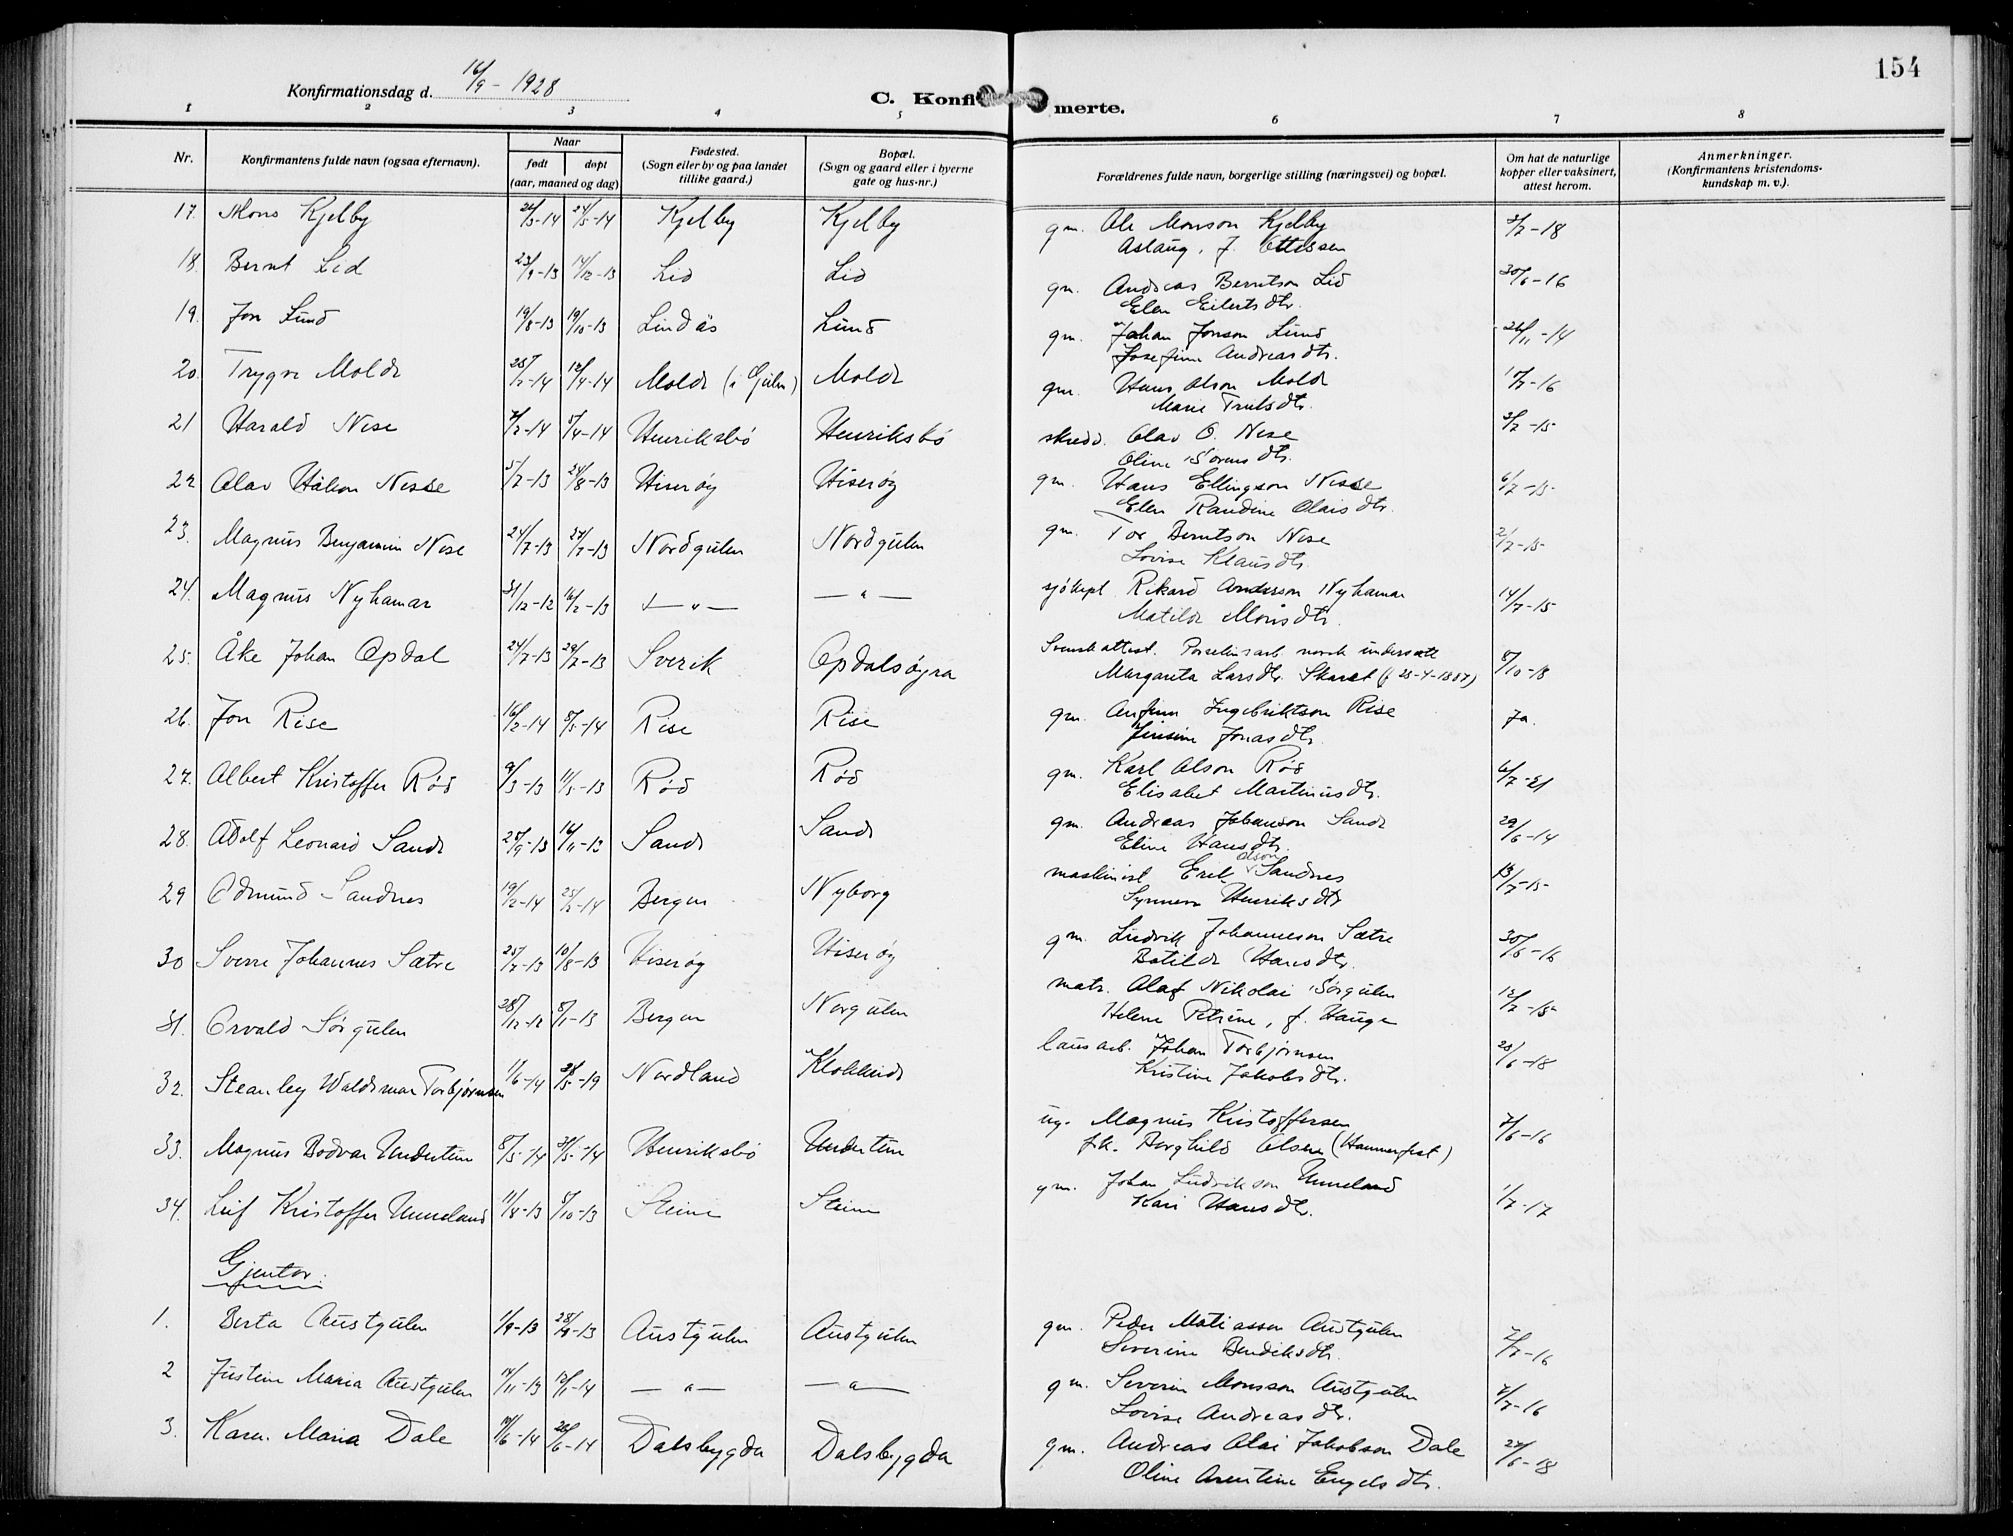 154
Konfirmationsdag d. 16/9 - 1928
C. Konfirmerte.
1 2 3 4 5 6 7 8
Nr.
Konfirmantens fulde navn (ogsaa efternavn).
Naar
født døpt
(aar, maaned og dag)
Fødested.
(Sogn eller by og paa landet
tillike gaard.)
Bopæl.
(Sogn og gaard eller i byerne
gate og hus-nr.)
Forældrenes fulde navn, borgerlige stilling (næringsvei) og bopæl.
Om hat de naturlige
kopper eller vaksinert,
attest herom.
Anmerkninger.
(Konfirmantens kristendoms-
kundskap m. v.).
17. Mons Kjelby 24/5-14 Kjelby Kjelby gm. Ole Monson Kjelby 3/7-18
Aslaug, f. Ottessen
18. Bernt Lid 23/9-13 14/12-13 Lid Lid gm. Andreas Berntson Lid 30/6-16
Elen Eilertsdtr.
19. Jon Lund 19/8-13 19/10-13 Lindås Lund gm. Johan Jonson Lund 26/11-14
Josefine Andreasdtr.
20. Trygve Molde 12/4-14 Molde (i Gulen) Molde gm. Hans Olson Molde
Marie Trulsdtr.
21 Harald Nese 7/2-14 5/4-14 Henriksbø Henriksbø skredd. Olav O. Nese 2/7-15
Oline Sørensdtr.
22 Olav Håkon Nesse 5/7-13 24/8-13 Hiserøy Hiserøy gm. Hans Ellingson Nesse 6/7-15
Elen Randine Olaisdtr.
23. Magnus Benjamin Nese 24/7-13 27/7-13 Nordgulen Nordgulen gm. Tor Berntson Nese 2/7-15
Lovise Klausdtr.
24. Magnus Nyhamar 31/12-12 16/2-13 — " — — " — sjøkapt. Rikard Andersson Nyhamar 14/7-15
Matilde Monsdtr.
25. Åke Johan Opdal 24/7-13 29/7-13 Sverik Opdalsøyra Svensk attest. Porselinsarb. norsk undersått 8/10-18
Margareta Larsdtr. Skaret
26. Jon Rise 16/2-14 Rise Rise gm. Anfinn Ingebriktson Rise Ja.
Jensine Jonasdtr.
27. Albert Kristoffer Rød 9/3-13 11/5-13 Rød Rød gm. Karl Olson Rød 6/7-21
Elisabet Martinusdtr.
28. Adolf Leonard Sande 16/11-13 Sande Sande gm. Andreas Johanson Sande 29/6-14
Eline Hansdtr.
29 Odmund Sandnes 19/2-14 Bergen Nyborg maskinist Erik Olson Sandnes 13/7-15
Synneva Henriksdtr
30 Sverre Johannes Sætre 25/7-13 10/8-13 Hiserøy Hiserøy gm. Ludvik Johanneson Sætre 30/6-16
Botilde Hansdtr.
31. Orvald Sørgulen 28/12-12 8/1-13 Bergen Norgulen matr. Olaf Nikolai Sørgulen 12/7-15
Helene Petrine, f. Hauge
32. Steanley Waldemar Torbjørnsen 1/6-14 Nordland laus arb. Johan Torbjørnsen
Kristine Jakobsdtr.
33. Magnus Bodvar Undertun 8/5-14 31/5-14 Henriksbø Undertun ug. Magnus Kristoffersen 7/6-16
frk. Borghild Olsen (Hammerfest)
34. Leif Kristoffer Unneland 11/8-13 5/10-13 Steine Steine gm. Johan Ludvikson Unneland 1/7-17
Kari Hansdtr.
Gjentor.
1. Berta Austgulen 1/9-13 28/9-13 Austgulen Austgulen gm. Peder Matiasson Austgulen 7/7-16
Severine Bendiksdtr.
2 Justine Maria Austgulen 14/11-13 — " — — " — gm. Severin Monsson Austgulen 7/7-16
Lovise Andreasdtr.
3. Karen Maria Dale 28/6-14 Dalsbygda Dalsbygda gm. Andreas Olai Jakobson Dale 27/6-18
Oline Arentine Engelsdtr.